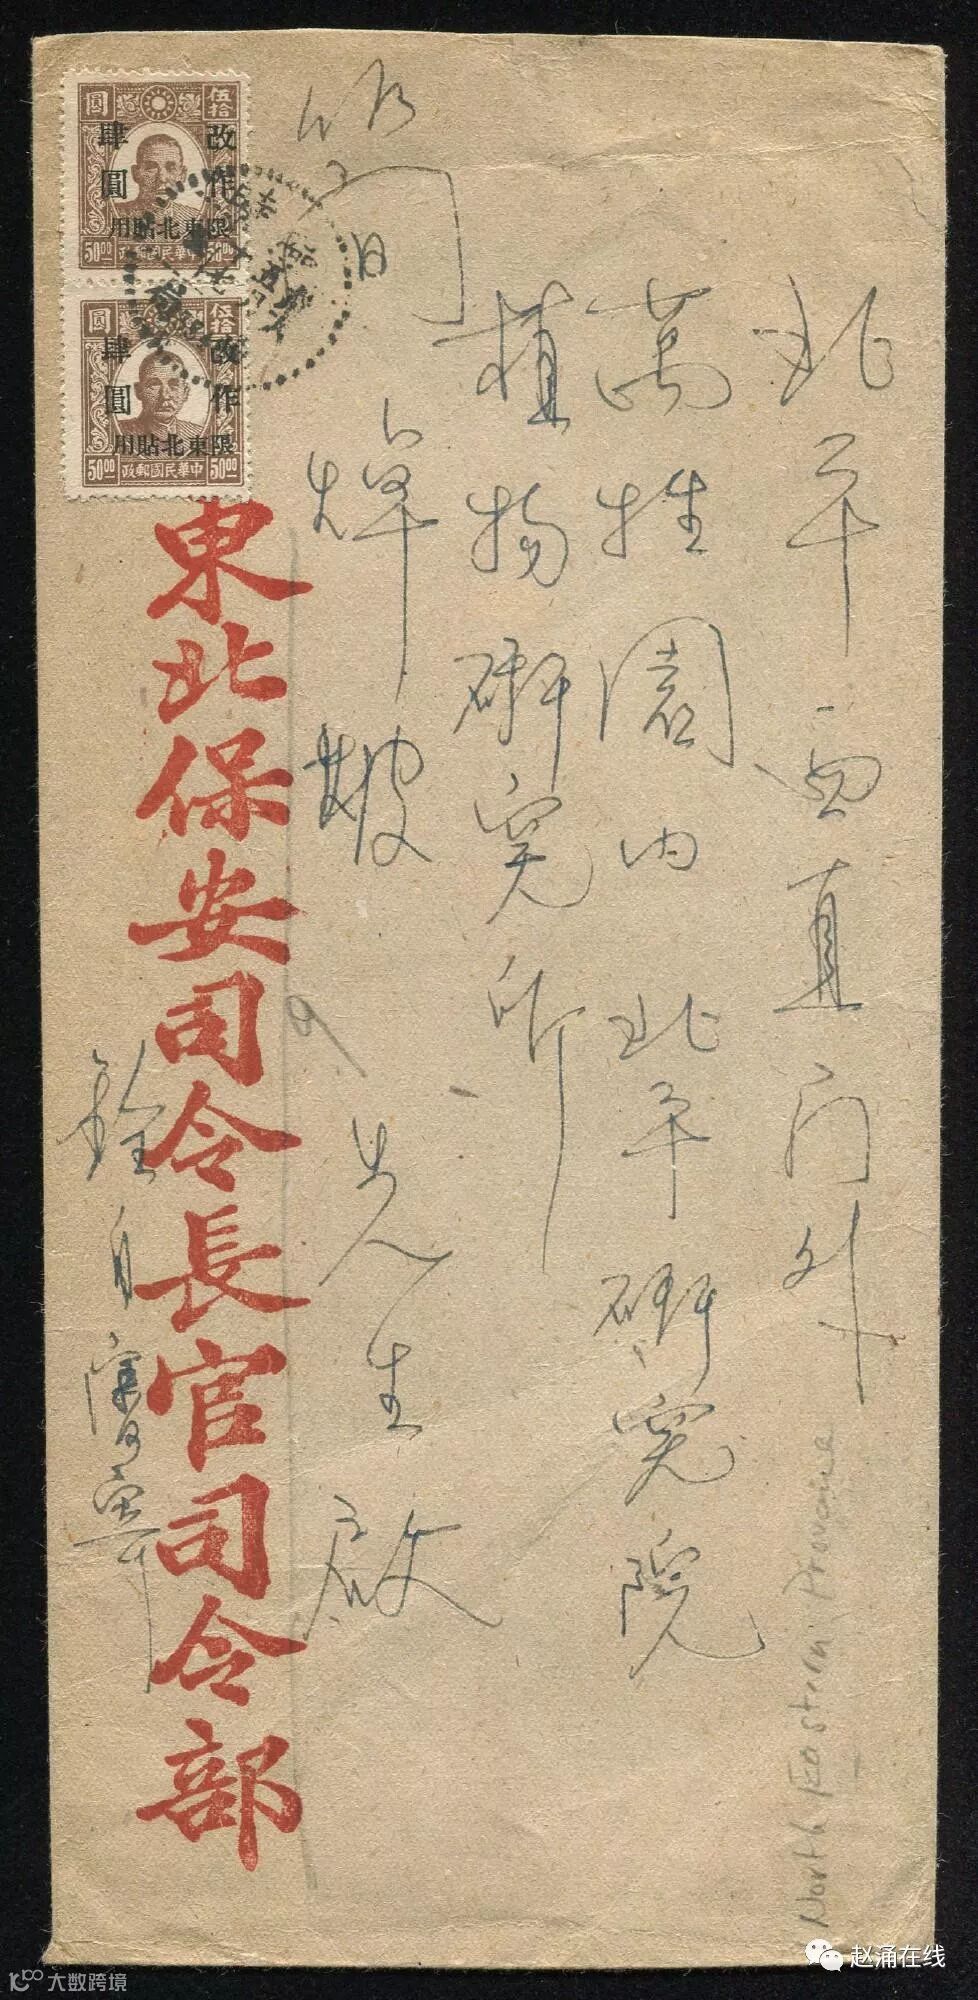 北平西直門外
萬牲園內北平研究院
植物研究所
先生啟
東北保安司令長官司令部
自瀋陽寄
圓 伍拾
改作
肆圓
限東北貼用
50.00 中華民國郵政 50.00
圓 伍拾
改作
肆圓
限東北貼用
50.00 中華民國郵政 50.00
North Eastern Province
赵涌在线
大数跨境